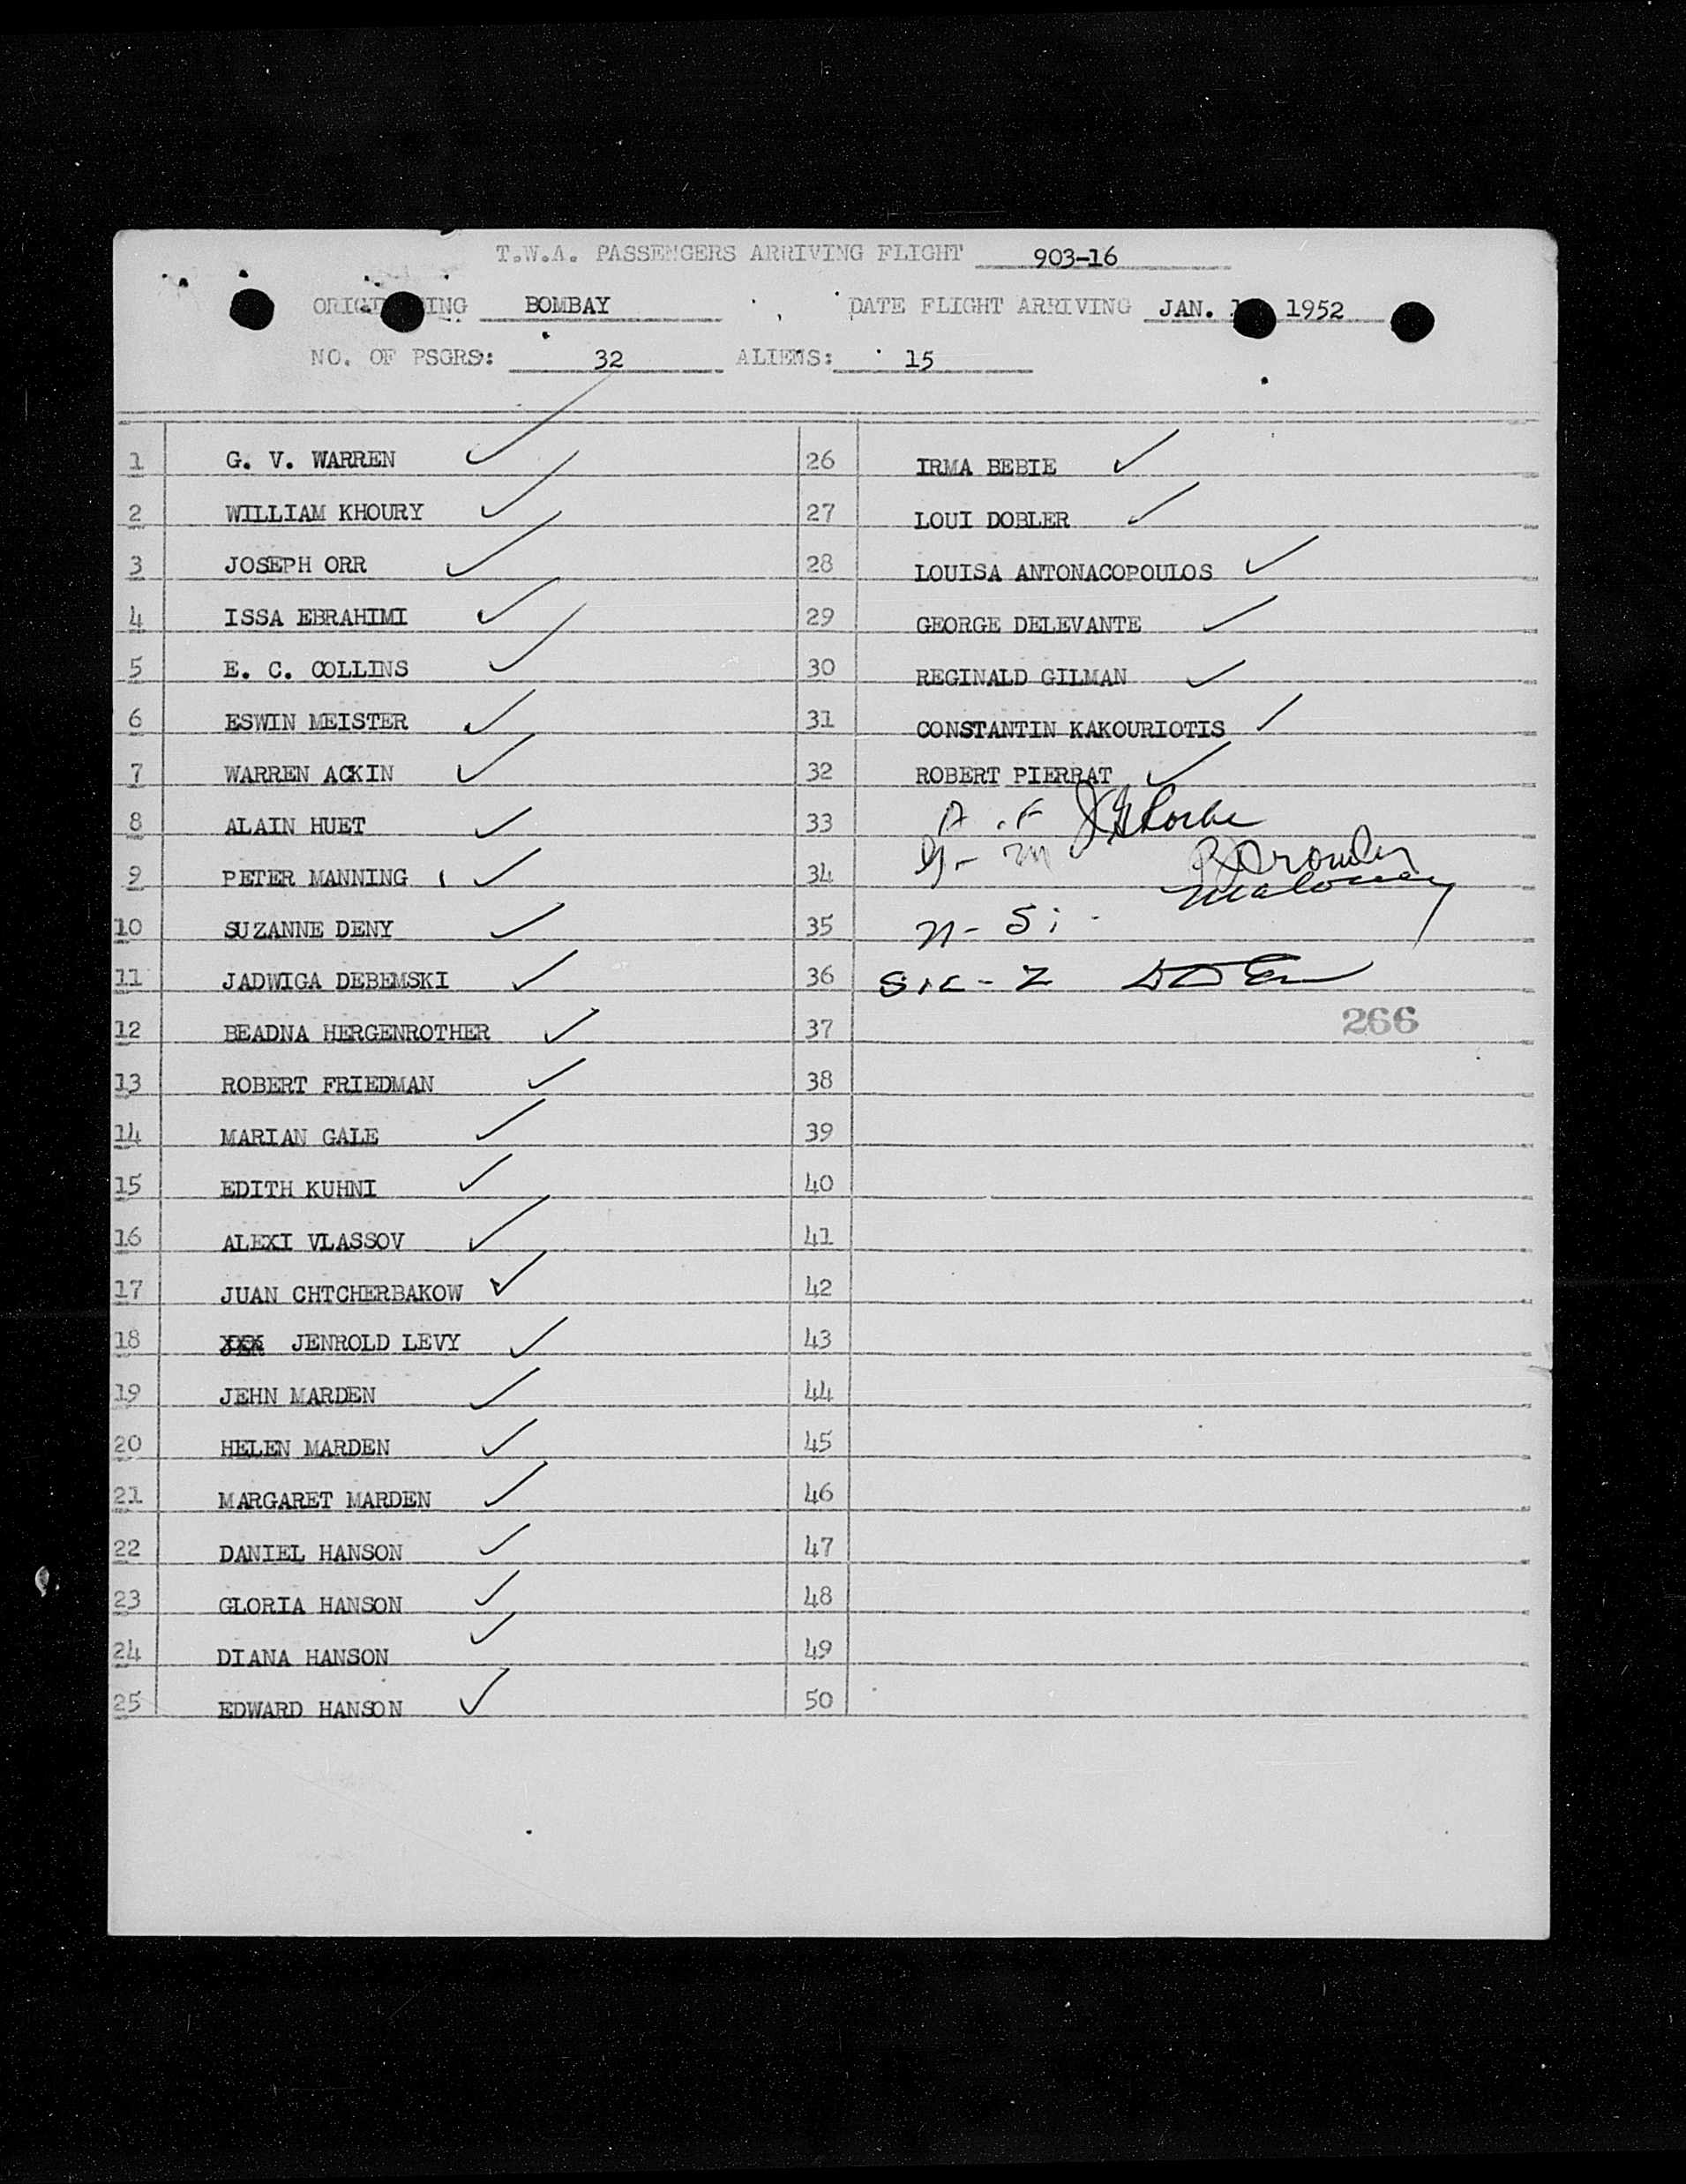 T.W.A. PASSENGERS ARRIVING FLIGHT 903-16
ORIGINATING BOMBAY DATE FLIGHT ARRIVING JAN. 1 1952
NO. OF PSGRS: 32 ALIENS: 15
1 G. V. WARREN
2 WILLIAM KHOURY
3 JOSEPH ORR
4 ISSA EBRAHIMI
5 E. C. COLLINS
6 ESWIN MEISTER
7 WARREN ACKIN
8 ALAIN HUET
9 PETER MANNING
10 SUZANNE DENY
11 JADWIGA DEBEMSKI
12 BEADNA HERGENROTHER
13 ROBERT FRIEDMAN
14 MARIAN GALE
15 EDITH KUHNI
16 ALEXI VLASSOV
17 JUAN CHTCHERBAKOW
18 JENROLD LEVY
19 JEHN MARDEN
20 HELEN MARDEN
21 MARGARET MARDEN
22 DANIEL HANSON
23 GLORIA HANSON
24 DIANA HANSON
25 EDWARD HANSON
26 IRMA BEBIE
27 LOUI DOBLER
28 LOUISA ANTONACOPOULOS
29 GEORGE DELEVANTE
30 REGINALD GILMAN
31 CONSTANTIN KAKOURIOTIS
32 ROBERT PIERRAT
33 A . F
34 Maloney
35 N - Si -
36 S, C - Z
37 266
38
39
40
41
42
43
44
45
46
47
48
49
50